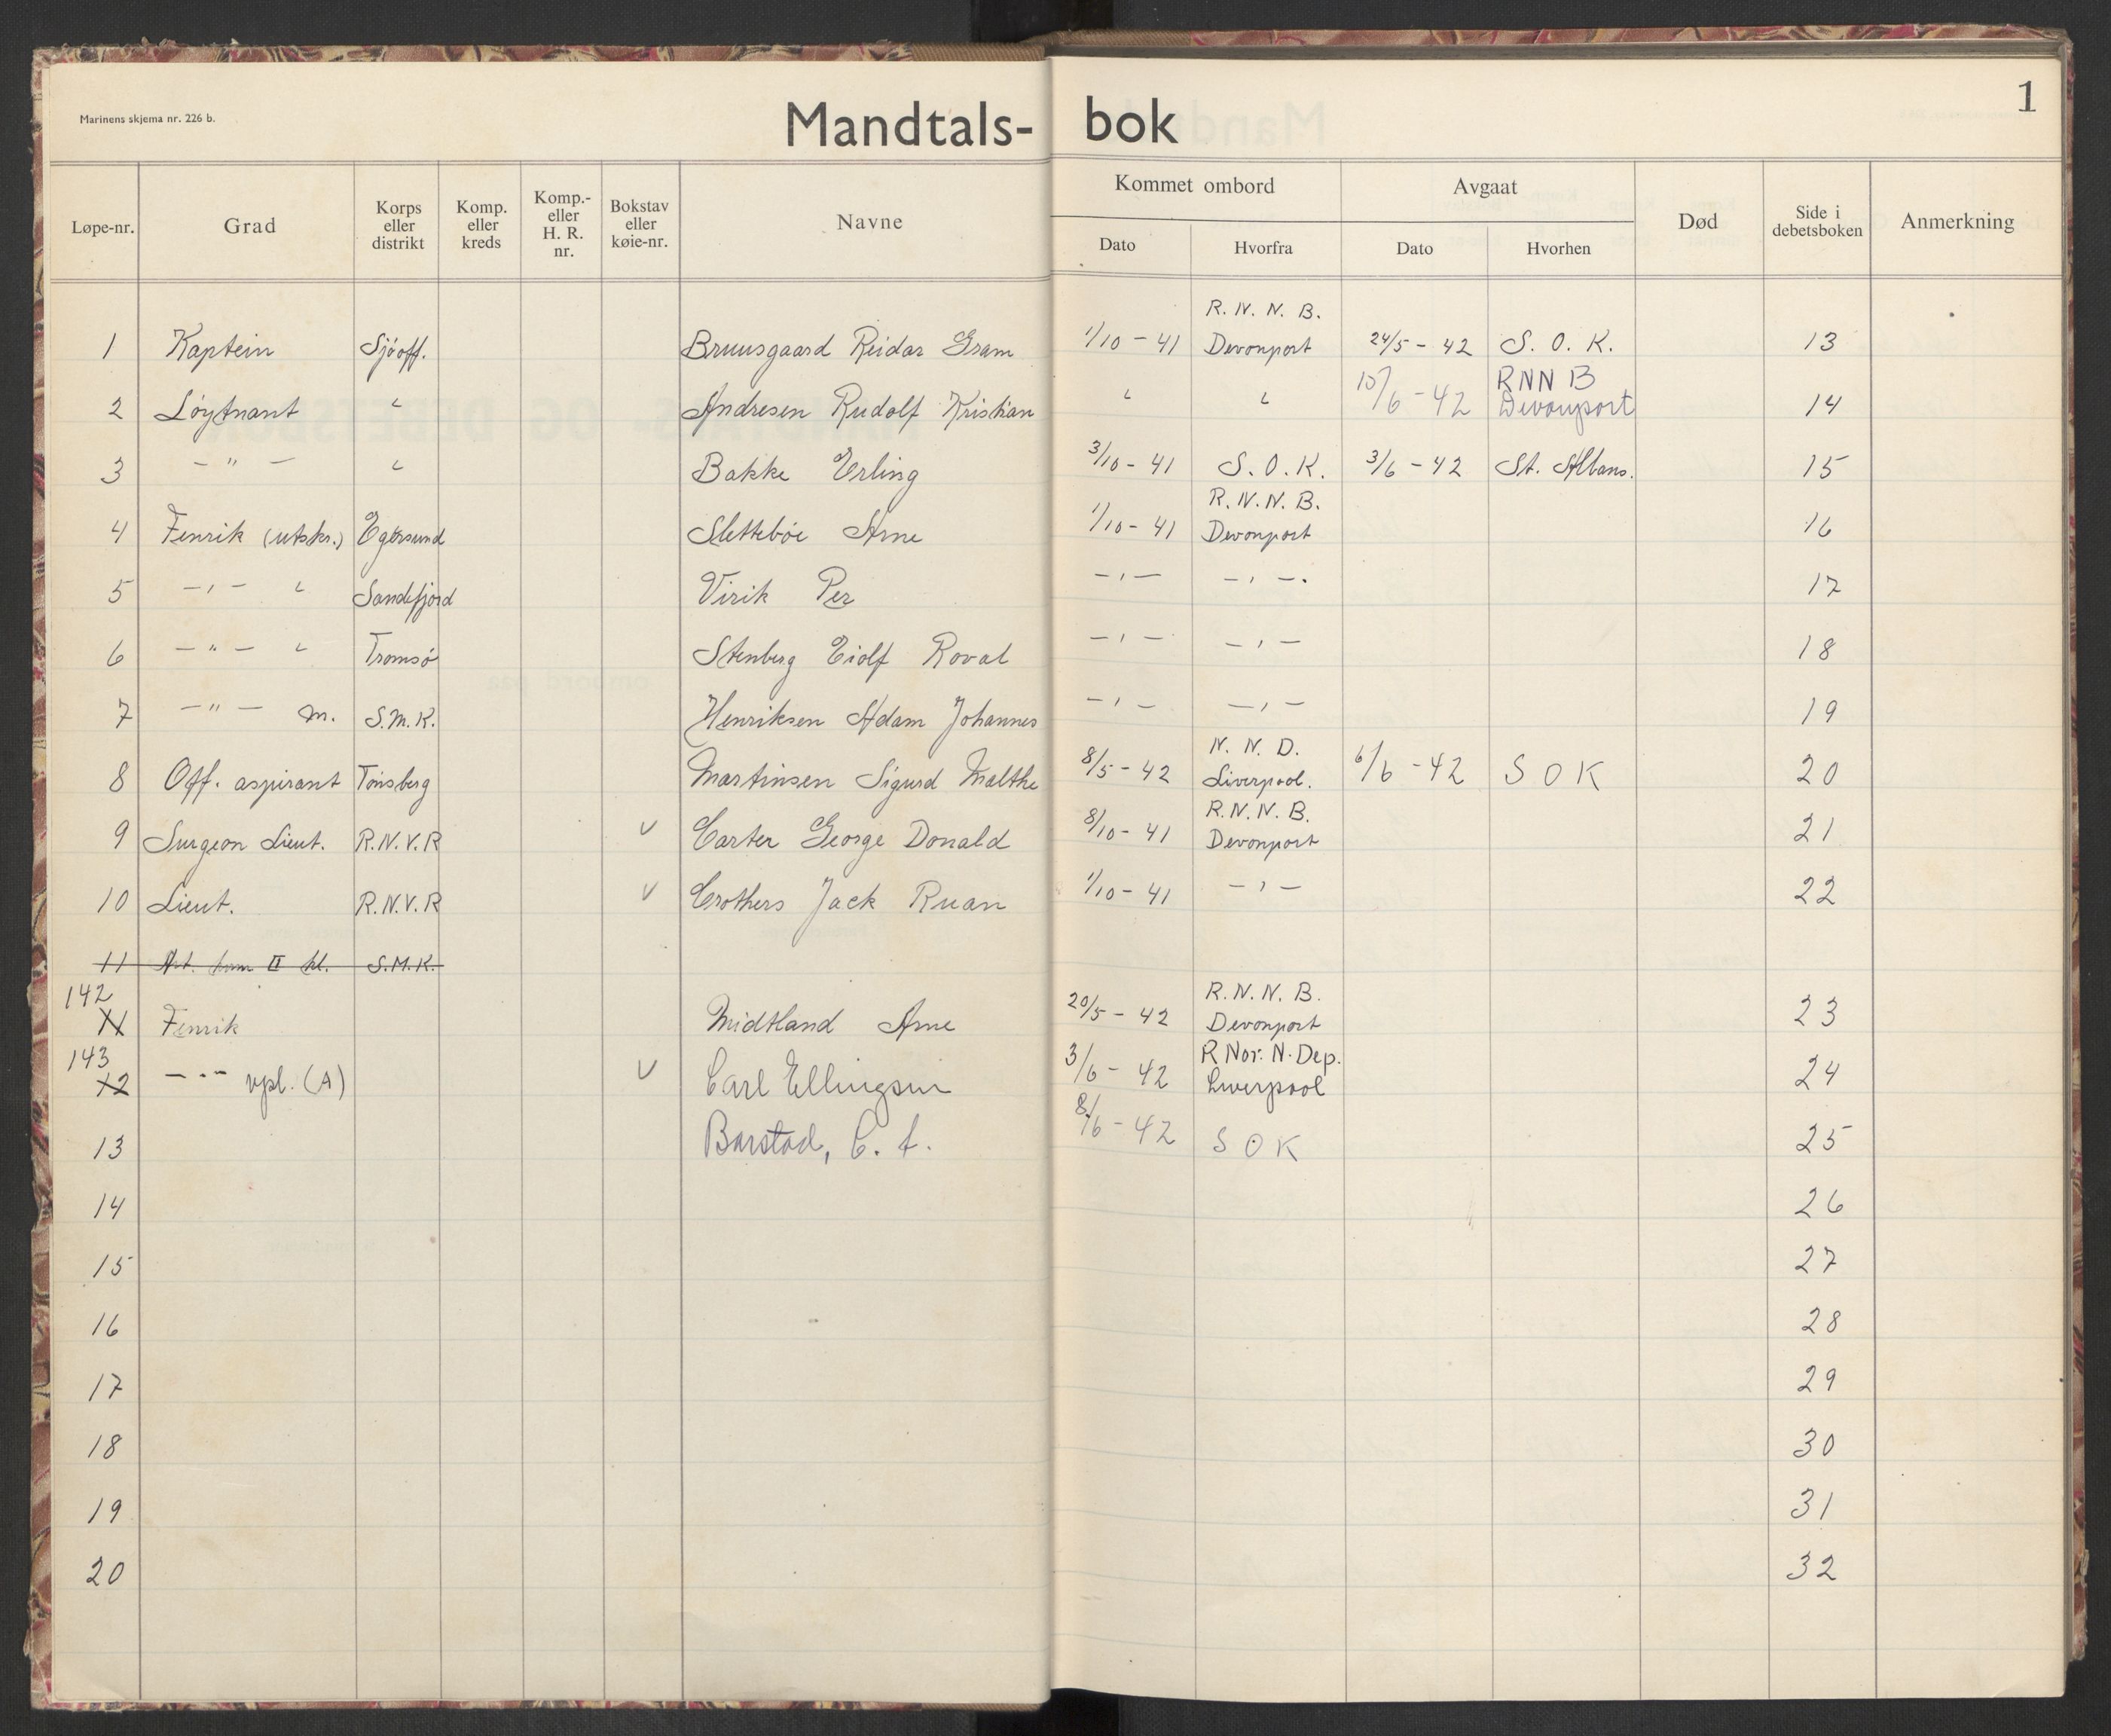 Marinens skjema nr. 226 b.
Mandtals-bok
1
Løpe-nr. Grad Korps eller distrikt Komp. eller kreds Komp.- eller H. R. nr. Bokstav eller køie-nr. Navne Kommet ombord Avgaat Død Side i debetsboken Anmerkning
Dato Hvorfra Dato Hvorhen
R. N. N. B.
1 Kaptein Sjöoff. Bruusgaard Reidar Gram 1/10 - 41 Devonport 24/5 - 42 S. O. K. 13
RNN B
2 Löytnant " Andresen Rudolf Kristian " " 15/6 - 42 Devonport 14
3 - " - " Bakke Erling 3/10 - 41 S. O. K. 3/6 - 42 St. Albans. 15
R. N. N. B.
4 Fenrik (utskr.) Egersund Slettebøe Arne 1/10 - 41 Devonport 16
5 - " - " Sandefjord Virik Per - " - - " - 17
6 - " - " Tromsö Stenberg Eiolf Roval - " - - " - 18
7 - " - m. S.M.K. Henriksen Adam Johannes - " - - " - 19
N. N. D.
8 Off. aspirant Tönsberg Martinsen Sigurd Malthe 8/5 - 42 Liverpool. 6/6 - 42 S O K 20
R. N. N. B.
9 Surgeon Lieut. R.N.V.R v Carter George Donald 8/10 - 41 Devonport 21
10 Lieut. R.N.V.R v Crothers Jack Ruan 1/10 - 41 - " - 22
11 II kl. S.M.K.
142 R. N. N. B.
11 Fenrik Midtland Arne 20/5 - 42 Devonport 23
143 R Nor. N. Dep.
12 - " - vpl. (A) v Carl Ellingsen 3/6 - 42 Liverpool 24
13 Barstad, C. f. 8/6 - 42 S O K 25
14 26
15 27
16 28
17 29
18 30
19 31
20 32